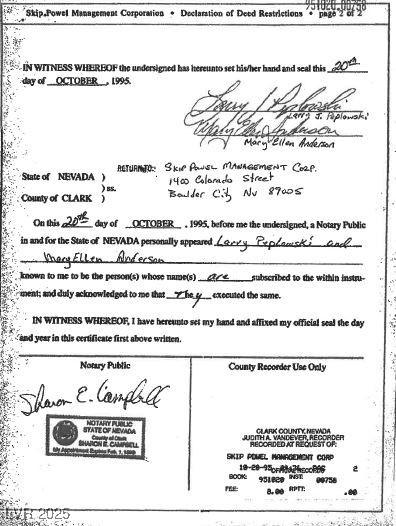 951020.00758
Skip Powel Management Corporation • Declaration of Deed Restrictions • page 2 of 2
IN WITNESS WHEREOF the undersigned has hereunto set his/her hand and seal this 20th
day of OCTOBER , 1995.
Larry J. Peplowski
Larry J. Peplowski
Mary Ellen Anderson
Mary Ellen Anderson
RETURN TO: SKIP POWEL MANAGEMENT CORP.
State of NEVADA ) 1400 Colorado Street
) ss. Boulder City NV 89005
County of CLARK )
On this 20th day of OCTOBER , 1995, before me the undersigned, a Notary Public
in and for the State of NEVADA personally appeared Larry Peplowski and
Mary Ellen Anderson
known to me to be the person(s) whose name(s) are subscribed to the within instru-
ment; and duly acknowledged to me that They executed the same.
IN WITNESS WHEREOF, I have hereunto set my hand and affixed my official seal the day
and year in this certificate first above written.
Notary Public
Sharon E. Campbell
NOTARY PUBLIC
STATE OF NEVADA
County of Clark
SHARON E. CAMPBELL
My Appointment Expires Feb. 1,
County Recorder Use Only
CLARK COUNTY, NEVADA
JUDITH A. VANDEVER, RECORDER
RECORDED AT REQUEST OF:
SKIP POWEL MANAGEMENT CORP
10-20-95 2
OFFICIAL RECORDS
BOOK: 951020 INST: 00758
FEE: 8.00 RPTT: .00
LVR 2025